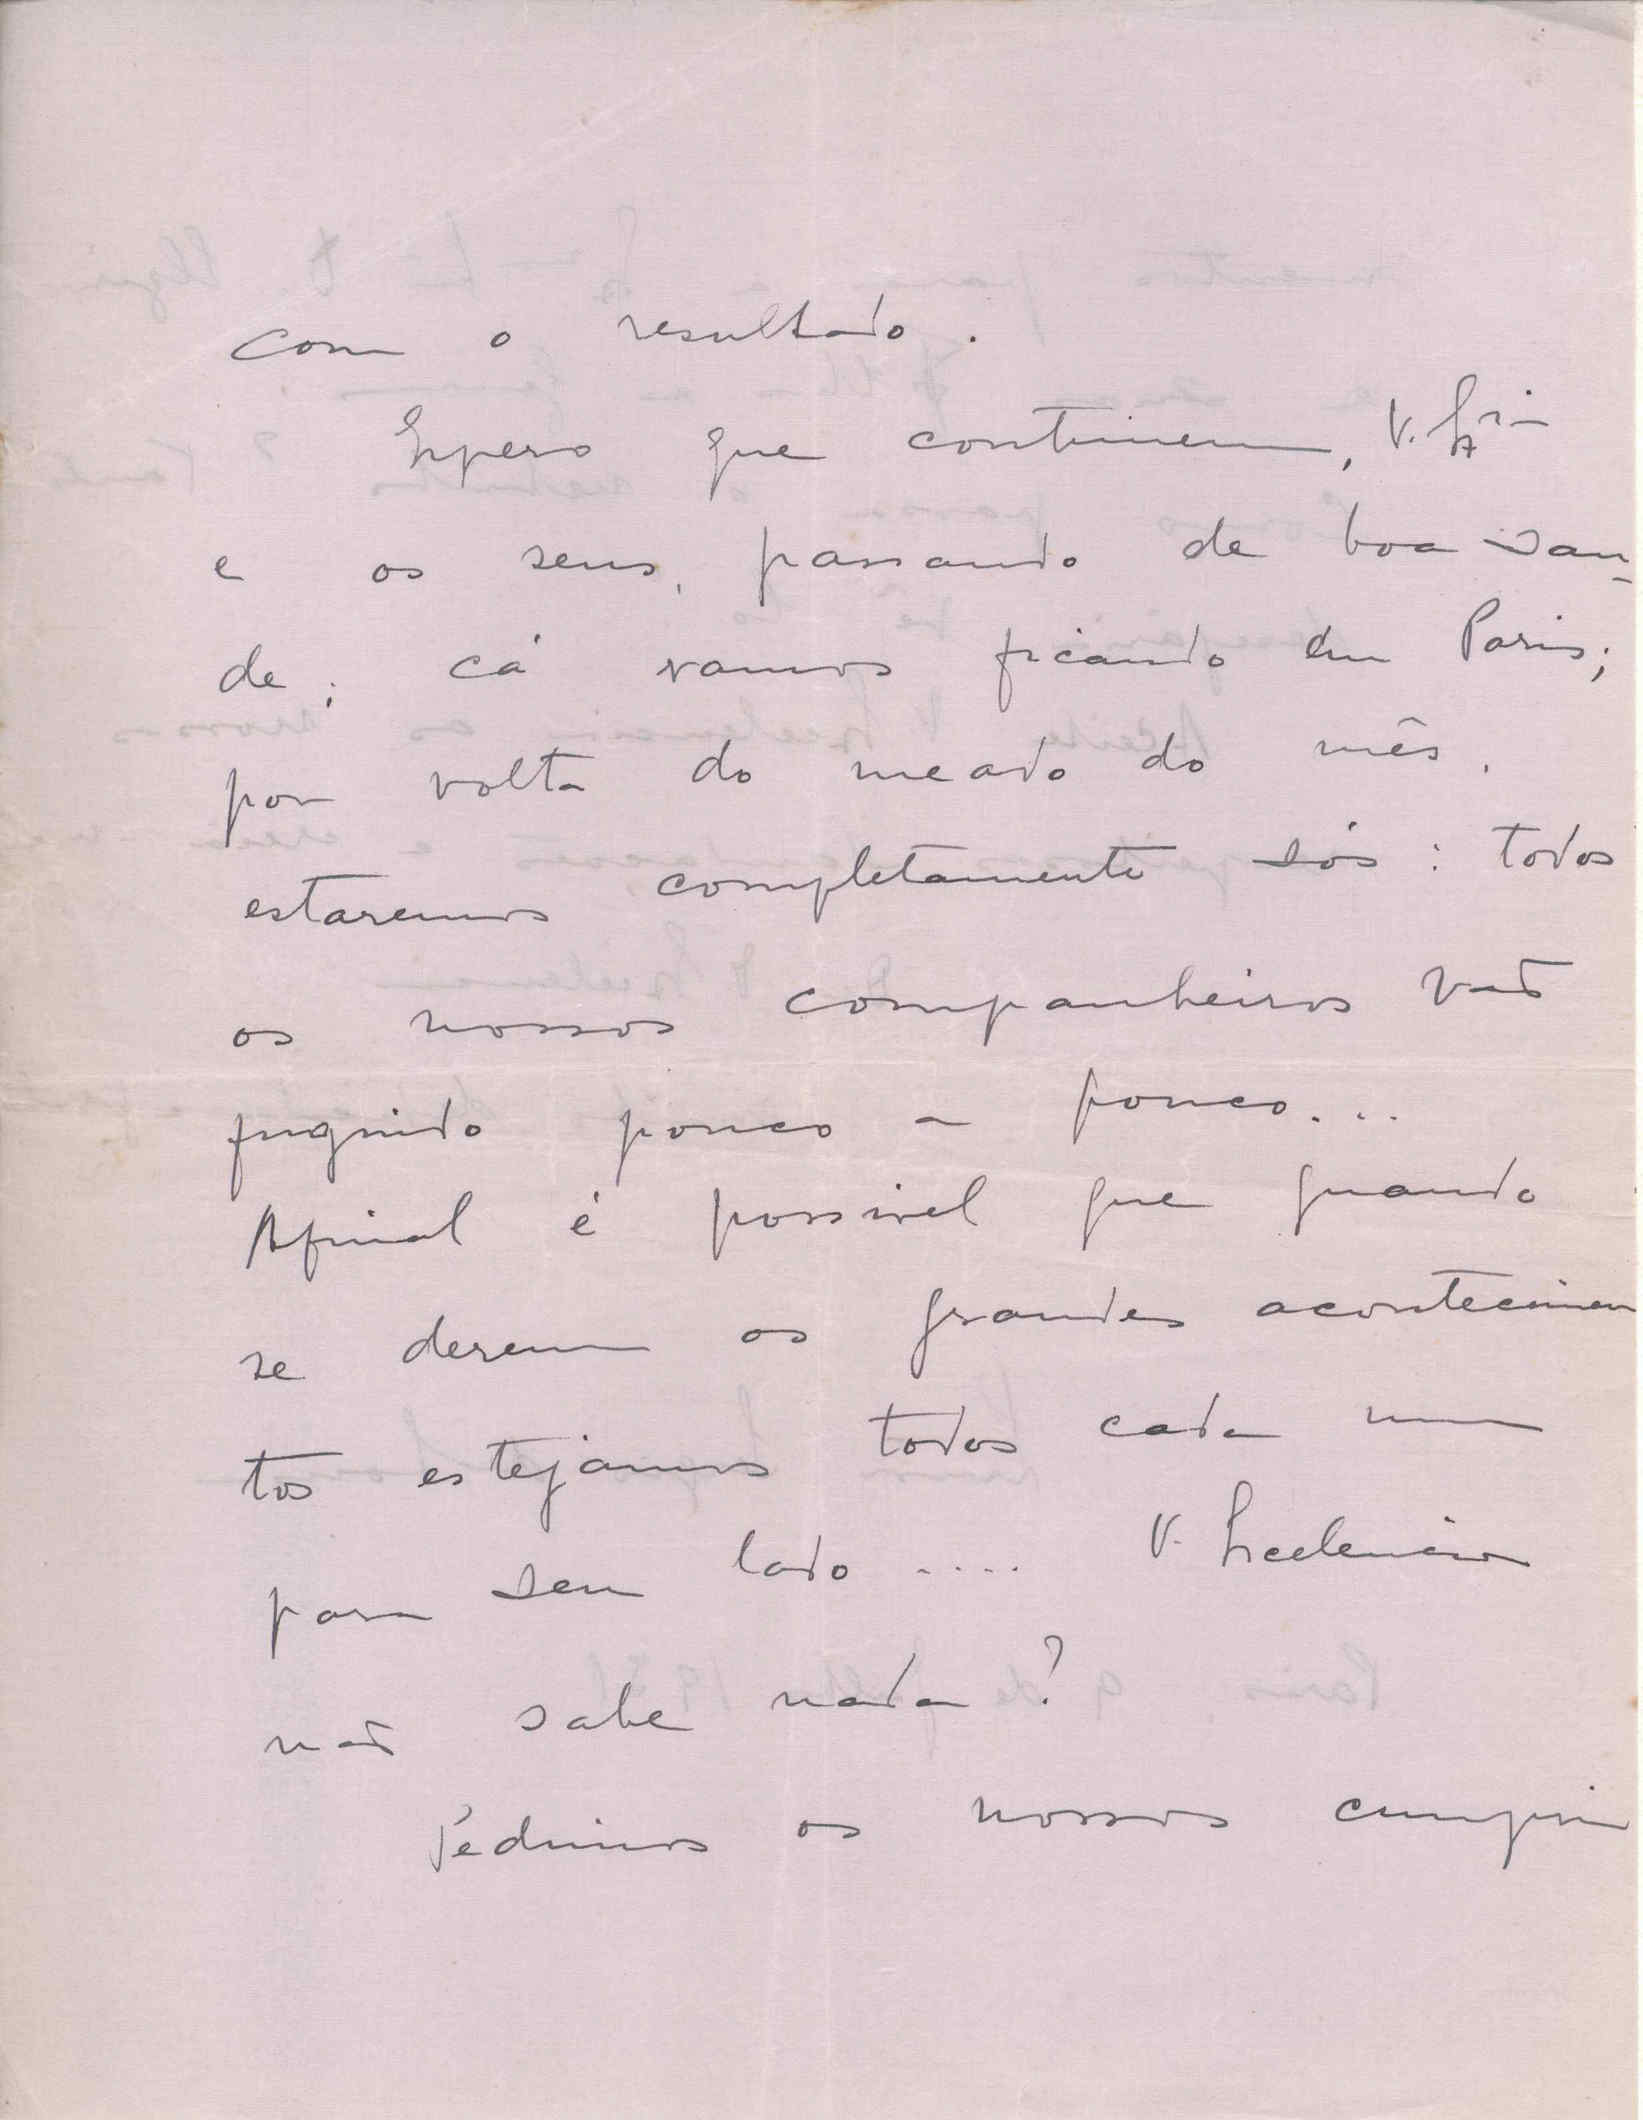 com o resultado.
Espero que continuem, V. Ex.cia
e os seus, passando de boa sau-
de; cá vamos ficando em Paris;
por volta do meado do mês,
estaremos completamente sós: todos
os nossos companheiros vão
fugindo pouco a pouco...
Afinal é possivel que quando
se derem os grandes acontecimen
tos estejamos todos cada um
para seu lado.... V. Excelencia
não sabe nada?
Pedimos os nossos cumpri